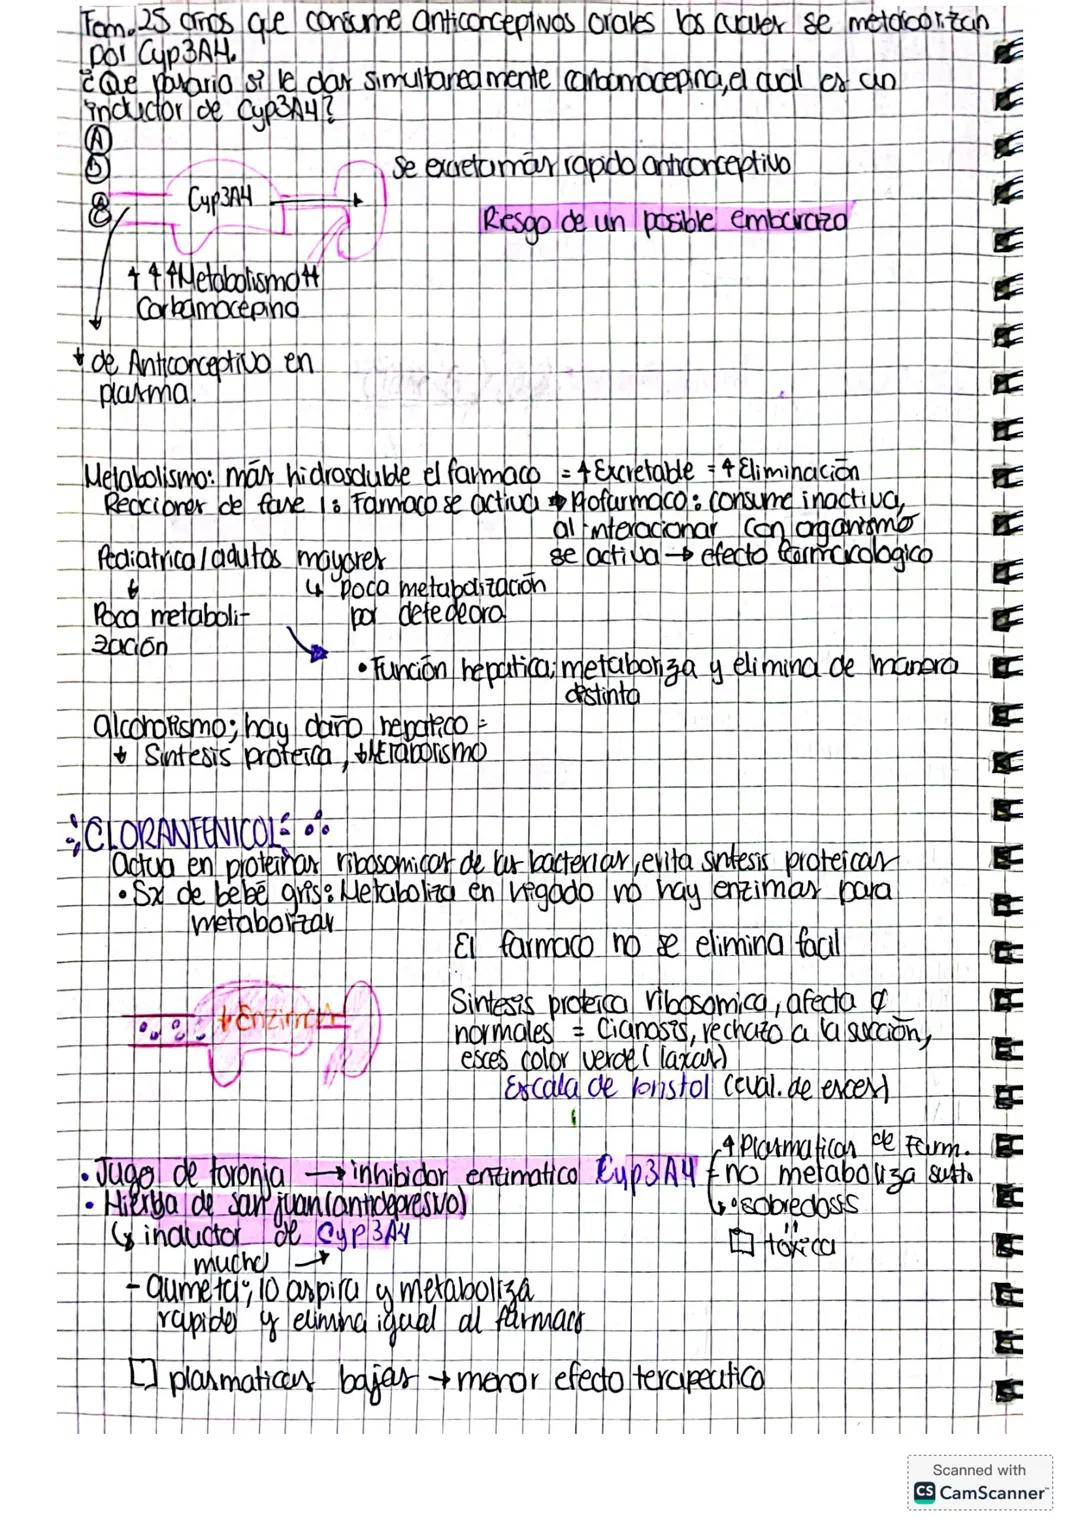 Fem. 25 años que consume anticonceptivos orales los cuales se metabolizan
por Cyp3A4.
¿Que pasaria si le das simultaneamente carbamacepina, el cual es un
inductor de Cyp3A4?
A
D
Se excreta más rapido anticonceptivo
Cyp3A4
Riesgo de un posible embarazo
↑↑↑Metabolismo++
Carbamacepina
↓ de Anticonceptivo en
plasma.
Metabolismo: más hidrosoluble el farmaco = ↑Excretable = ↑Eliminación
Reacciones de fase 1: Farmaco se activa → Profarmaco: consume inactiva,
al interacionar con organismo
se activa → efecto farmacologico
Pediatrica/adultos mayores
↓
↳ poca metabolización
Poca metaboli-
zación
por
• Función hepatica; metaboliza y elimina de manera
distinta
alcoholismo; hay daño hepatico =
↓ Sintesis proteica, ↓Metabolismo
CLORANFENICOL
Actua en proteinas ribosomicas de las bacterias, evita sintesis proteicas
• Sx de bebé gris: Metaboliza en higado no hay enzimas para
metabolizar
El farmaco no se elimina facil
↓Enzimas
Sintesis proteica ribosomica, afecta
normales = Cianosis, rechazo a la succión,
eses color verde (laxas)
Escala de bristol (eval. de eses)
• Jugo de toronja → inhibidor enzimatico Cyp3A4
↑ Plasmaticas de Farm.
no metaboliza sust.
sobredosis
[] tóxica
• Hierba de san juan (antidepresivo)
↳ inductor de Cyp3A4
mucho →
- aumeta; lo aspira y metaboliza
rapido y elimina igual al farmaco
[] plasmaticas bajas → menor efecto terapeutico
Scanned with
CS CamScanner